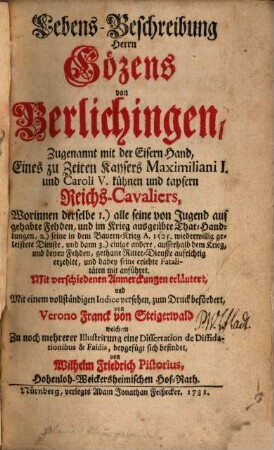 Lebens-Beschreibung
Herrn
Gözens
von
Berlichingen,
Zugenannt mit der Eisern Hand,
Eines zu Zeiten Kaysers Maximiliani I.
und Caroli V. kühnen und tapfern
Reichs-Cavaliers,
Worinnen derselbe 1.) alle seine von Jugend auf
gehabte Fehden, und im Krieg ausgeübte That-Hand-
lungen, 2.) seine in dem Bauern-Krieg A. 1525. wiederwillig ge-
leistete Dienste, und dann 3.) einige andere, ausserhalb dem Krieg,
und denen Fehden, gethane Ritter-Dienste aufrichtig
erzehlet, und dabey seine erlebte Fatali-
täten mit anführet.
Mit verschiedenen Anmerckungen erläutert,
und
Mit einem vollständigen Indice versehen, zum Druck befördert,
von
Verono Franck von Steigerwald
welchem
Zu noch mehrerer Illustrirung eine Dissertation de Diffida-
tionibus & Faidis, beygefüget sich befindet,
von
Wilhelm Friedrich Pistorius,
Hohenloh-Weickersheimischen Hof-Rath.
Nürnberg, verlegts Adam Jonathan Felßecker. 1731.